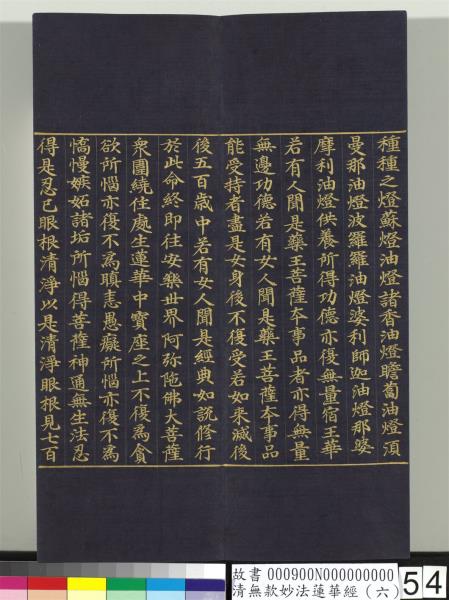 種種之燈蘇燈油燈諸香油燈瞻蔔油燈須
曼那油燈波羅羅油燈婆利師迦油燈那婆
摩利油燈供養所得功德亦復無量宿王華
若有人聞是藥王菩薩本事品者亦得無量
無邊功德若有女人聞是藥王菩薩本事品
能受持者盡是女身後不復受若如來滅後
後五百歲中若有女人聞是經典如說修行
於此命終即往安樂世界阿彌陁佛大菩薩
衆圍繞住處生蓮華中寶座之上不復為貪
欲所惱亦復不為瞋恚愚癡所惱亦復不為
憍慢嫉妬諸垢所惱得菩薩神通無生法忍
得是忍已眼根清淨以是清淨眼根見七百
故書 000900N000000000
清無款妙法蓮華經（六）
54